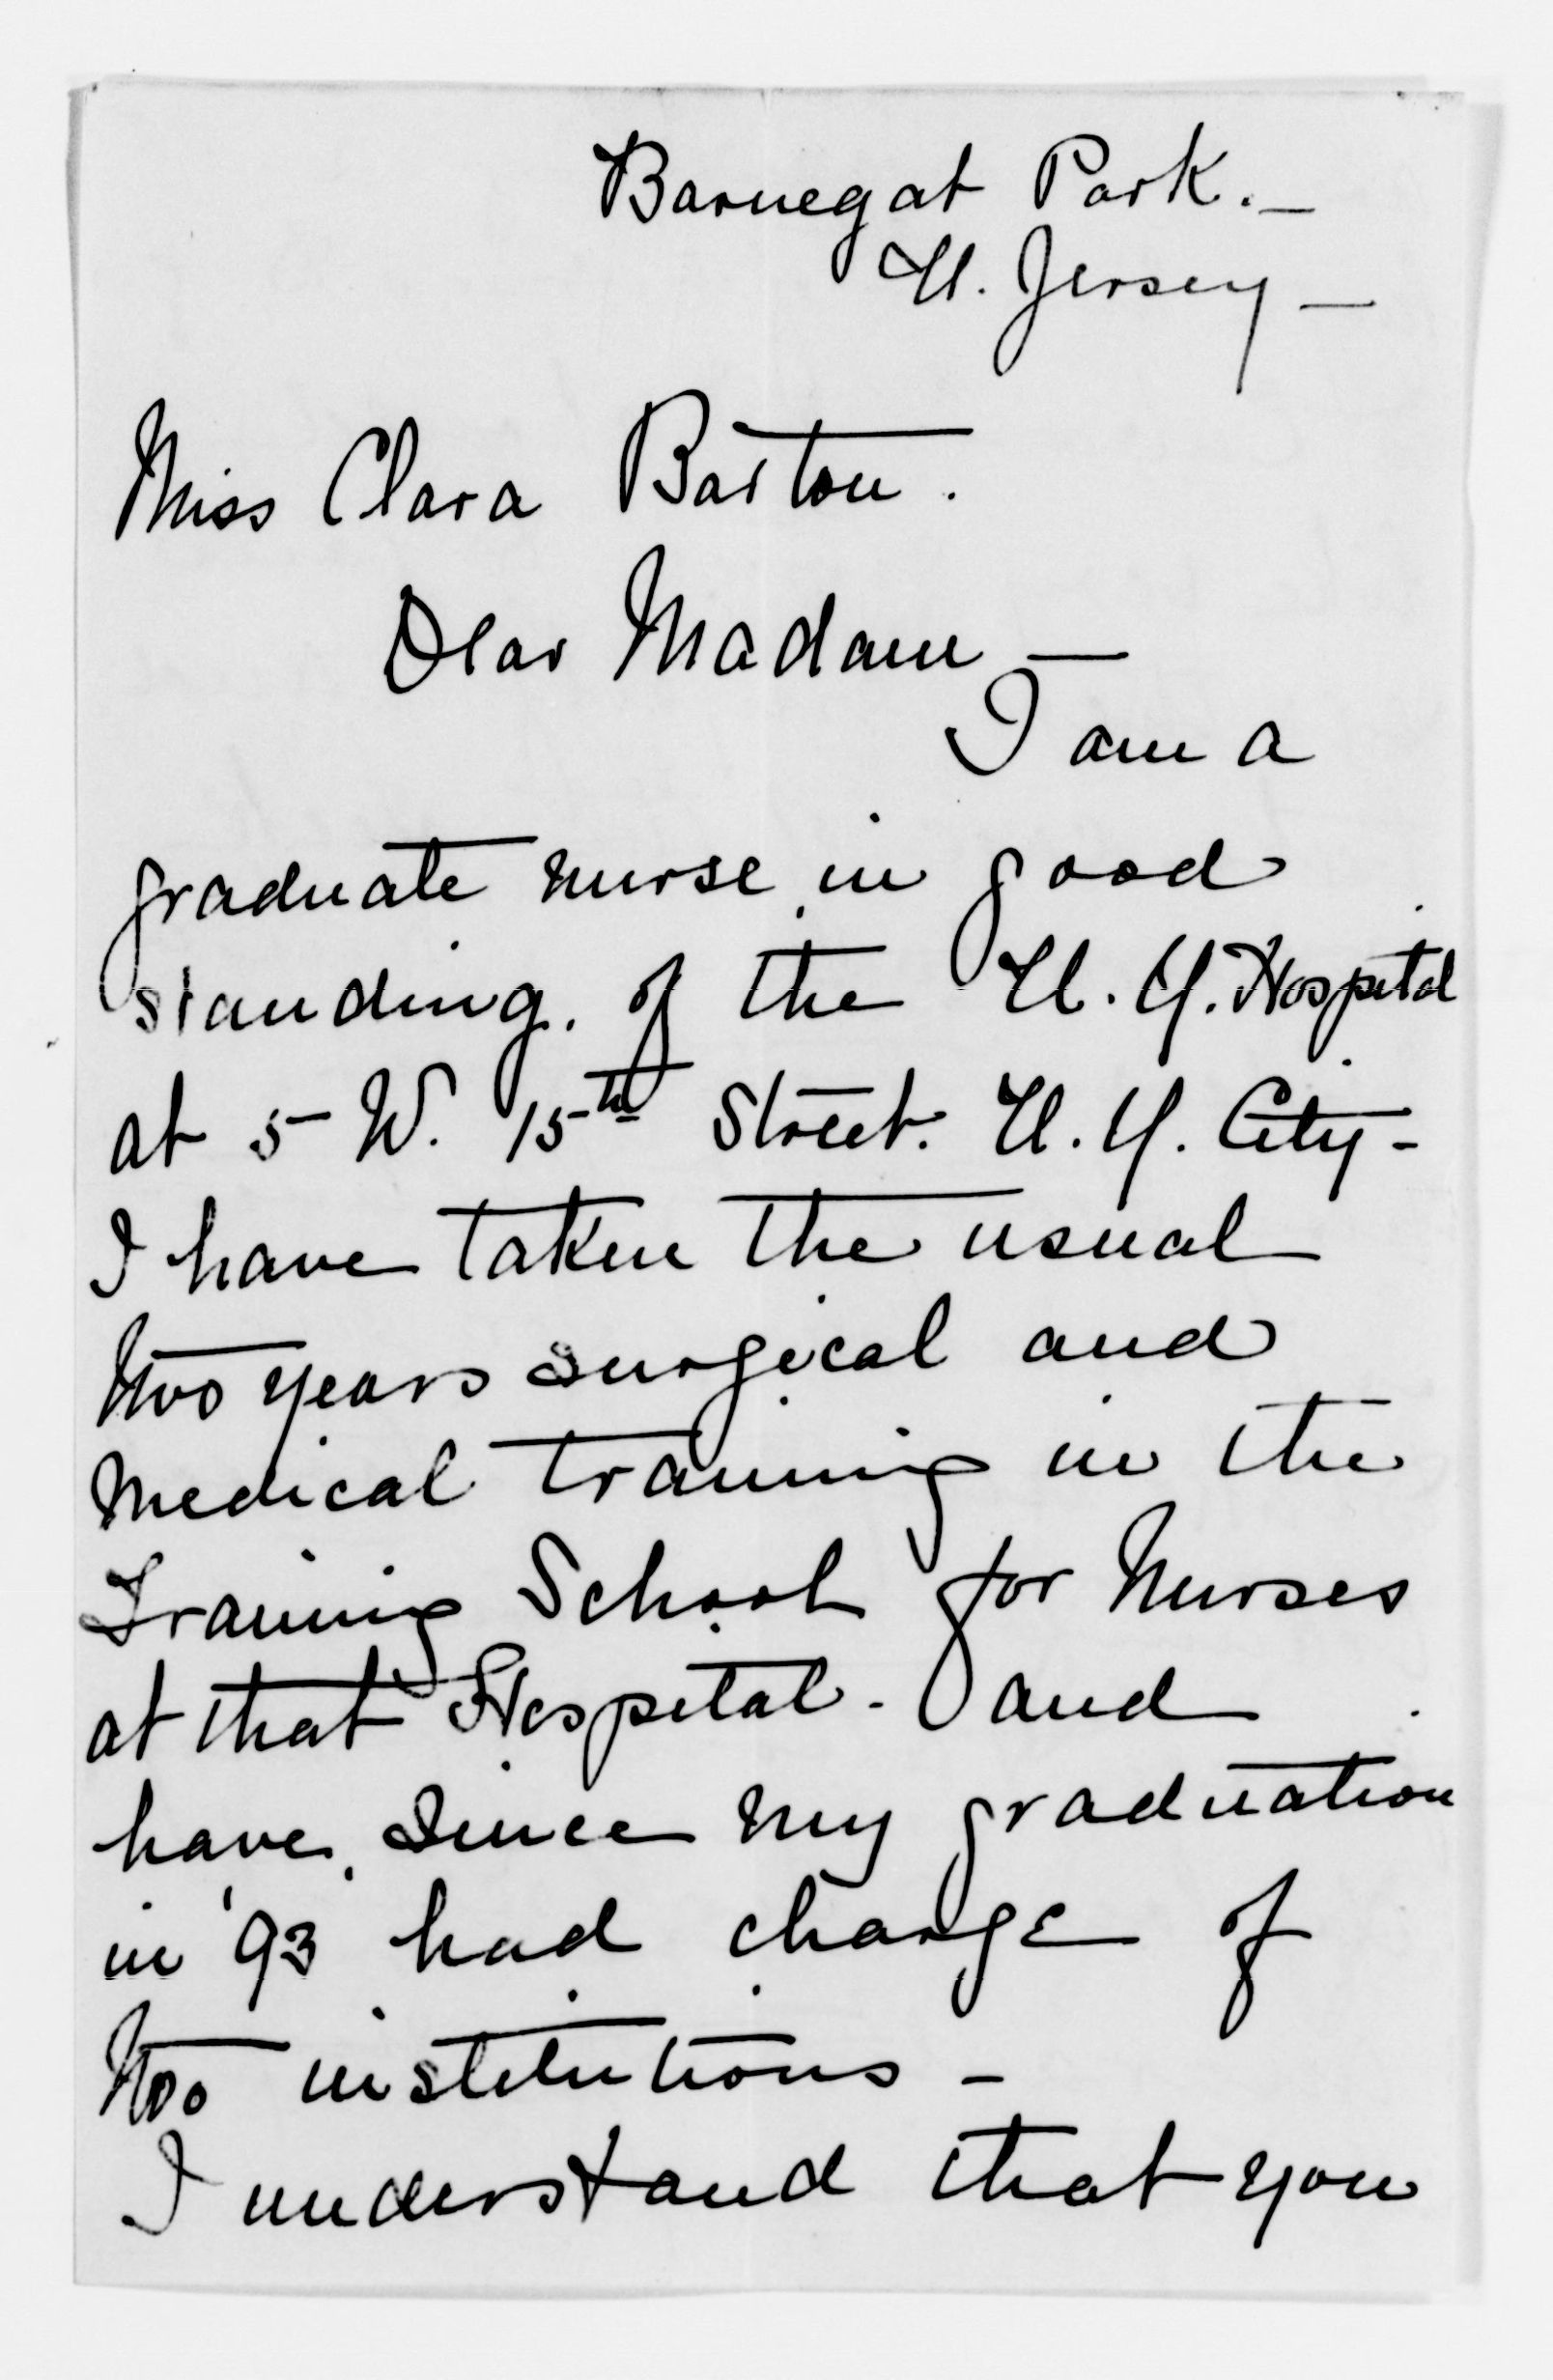 Barnegat Park. —
N. Jersey —
Miss Clara Barton.
Dear Madam —
I am a
graduate nurse in good
standing. of the N. Y. Hospital
at 5 W. 15th Street. N. Y. City -
I have taken the usual
two years surgical and
medical training in the
Training School for Nurses
at that Hospital - and
have, since my graduation
in '93 had charge of
two institutions -
I understand that you